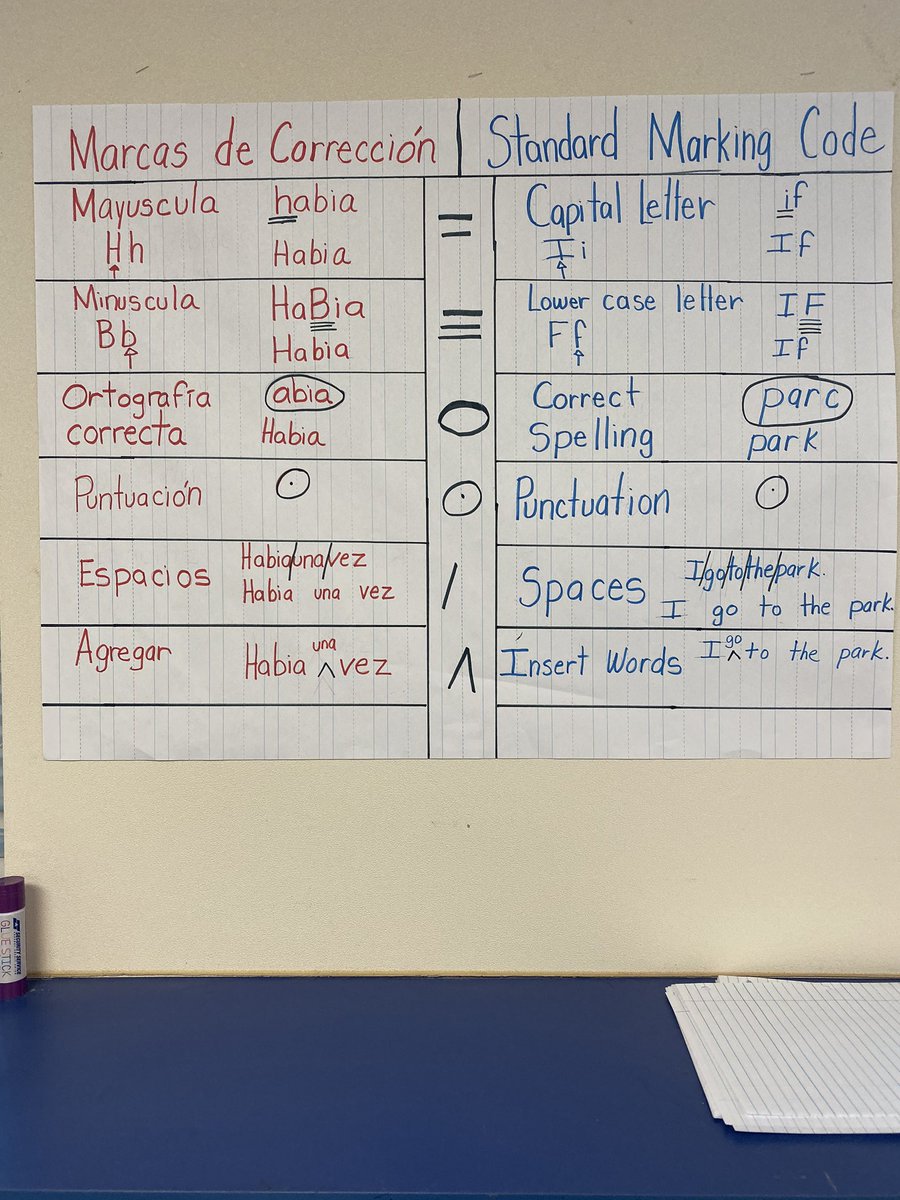 Marcas de Corrección | Standard Marking Code
Mayuscula habia = Capital Letter if
Hh Habia Ii If
Minuscula HaBia ≡ Lower case letter IF
Bb Habia Ff If
Ortografía abia Correct parc
correcta Habia Spelling park
Puntuación ⊙ ⊙ Punctuation ⊙
Espacios Habia/una/vez / Spaces I/go/to/the/park.
Habia una vez I go to the park.
Agregar una Insert Words go
Habia ^ vez ^ I ^ to the park.
GLUE STICK